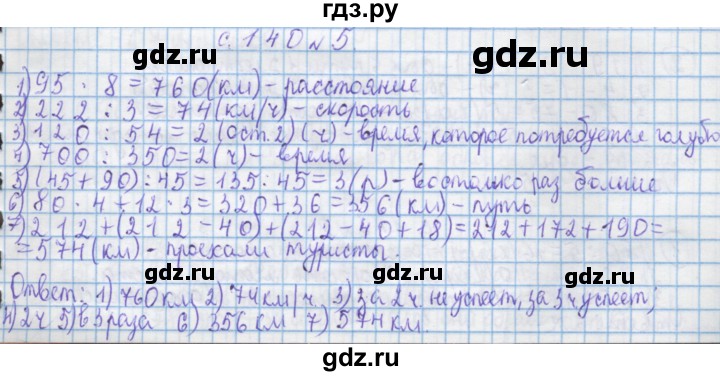 гдз.ру
с. 140 № 5.
1) 95 · 8 = 760 (км) - расстояние
2) 222 : 3 = 74 (км/ч) - скорость
3) 120 : 54 = 2 (ост. 2) (ч) - время, которое потребуется голубю
4) 700 : 350 = 2 (ч) - время
5) (45 + 90) : 45 = 135 : 45 = 3 (р) - во столько раз больше
6) 80 · 4 + 12 · 3 = 320 + 36 = 356 (км) - путь
7) 212 + (212 - 40) + (212 - 40 + 18) = 212 + 172 + 190 =
= 574 (км) - проехали туристы.
Ответ: 1) 760 км 2) 74 км/ч 3) за 2 ч не успеет, за 3 ч успеет;
4) 2 ч 5) в 3 раза 6) 356 км 7) 574 км.
gdz.ru
gdz.ru
gdz.ru
gdz.ru
gdz.ru
gdz.ru
gdz.ru
gdz.ru
gdz.ru
gdz.ru